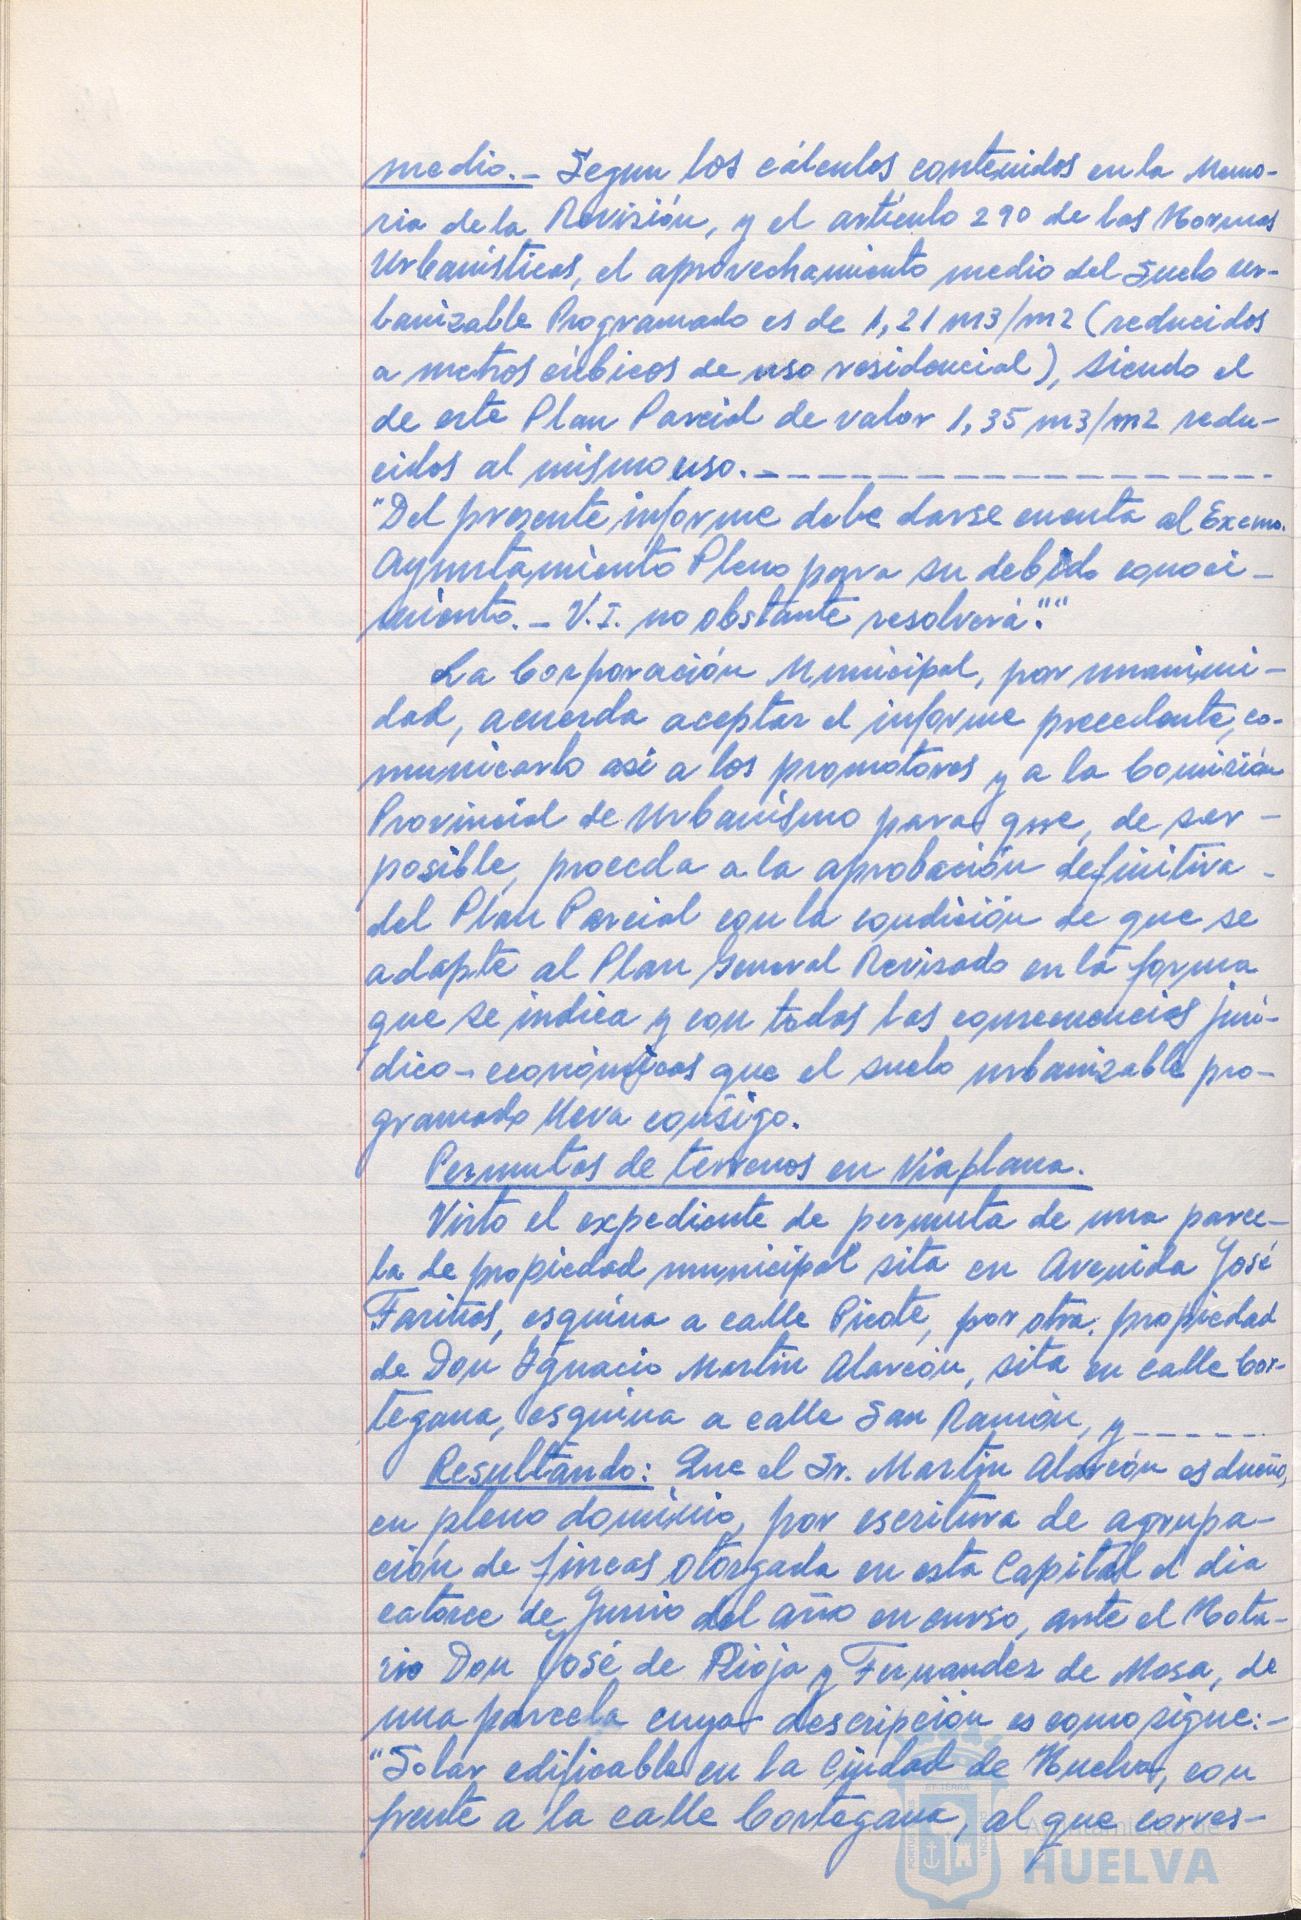 medio.- Segun los cálculos contenidos en la Memo-
ria de la Revisión, y el artículo 290 de las Normas
Urbanísticas, el aprovechamiento medio del Suelo Ur-
banizable Programado es de 1,21 m3/m2 (reducidos
a metros cúbicos de uso residencial), siendo el
de este Plan Parcial de valor 1,35 m3/m2 redu-
cidos al mismo uso.-------------------
"Del presente informe debe darse cuenta al Excmo.
Ayuntamiento Pleno para su debido conoci-
miento.- V.I. no obstante resolverá.""
La Corporación Municipal, por unanimi-
dad, acuerda aceptar el informe precedente, co-
municarlo asi a los promotores y a la Comisión
Provincial de Urbanismo para que, de ser-
posible, proceda a la aprobación definitiva-
del Plan Parcial con la condición de que se
adapte al Plan General Revisado en la forma
que se indica y con todas las consecuencias jurí-
dico-económicas que el suelo urbanizable pro-
gramado lleva consigo.
Permutas de terrenos en Viaplana.
Visto el expediente de permuta de una parce-
la de propiedad municipal sita en Avenida José
Fariñas, esquina a calle Picote, por otra, propiedad
de Don Ignacio Martin Alarcón, sita en calle Cor-
tegana, esquina a calle San Ramón, y------
Resultando: Que el Sr. Martin Alarcón es dueño,
en pleno dominio, por escritura de agrupa-
ción de fincas otorgada en esta Capital el dia
catorce de Junio del año en curso, ante el Nota-
rio Don José de Rioja y Fernandez de Mesa, de
una parcela cuya descripción es como sigue:-
"Solar edificable en la Ciudad de Huelva, con
frente a la calle Cortegana, al que corres-
Ayuntamiento de
HUELVA